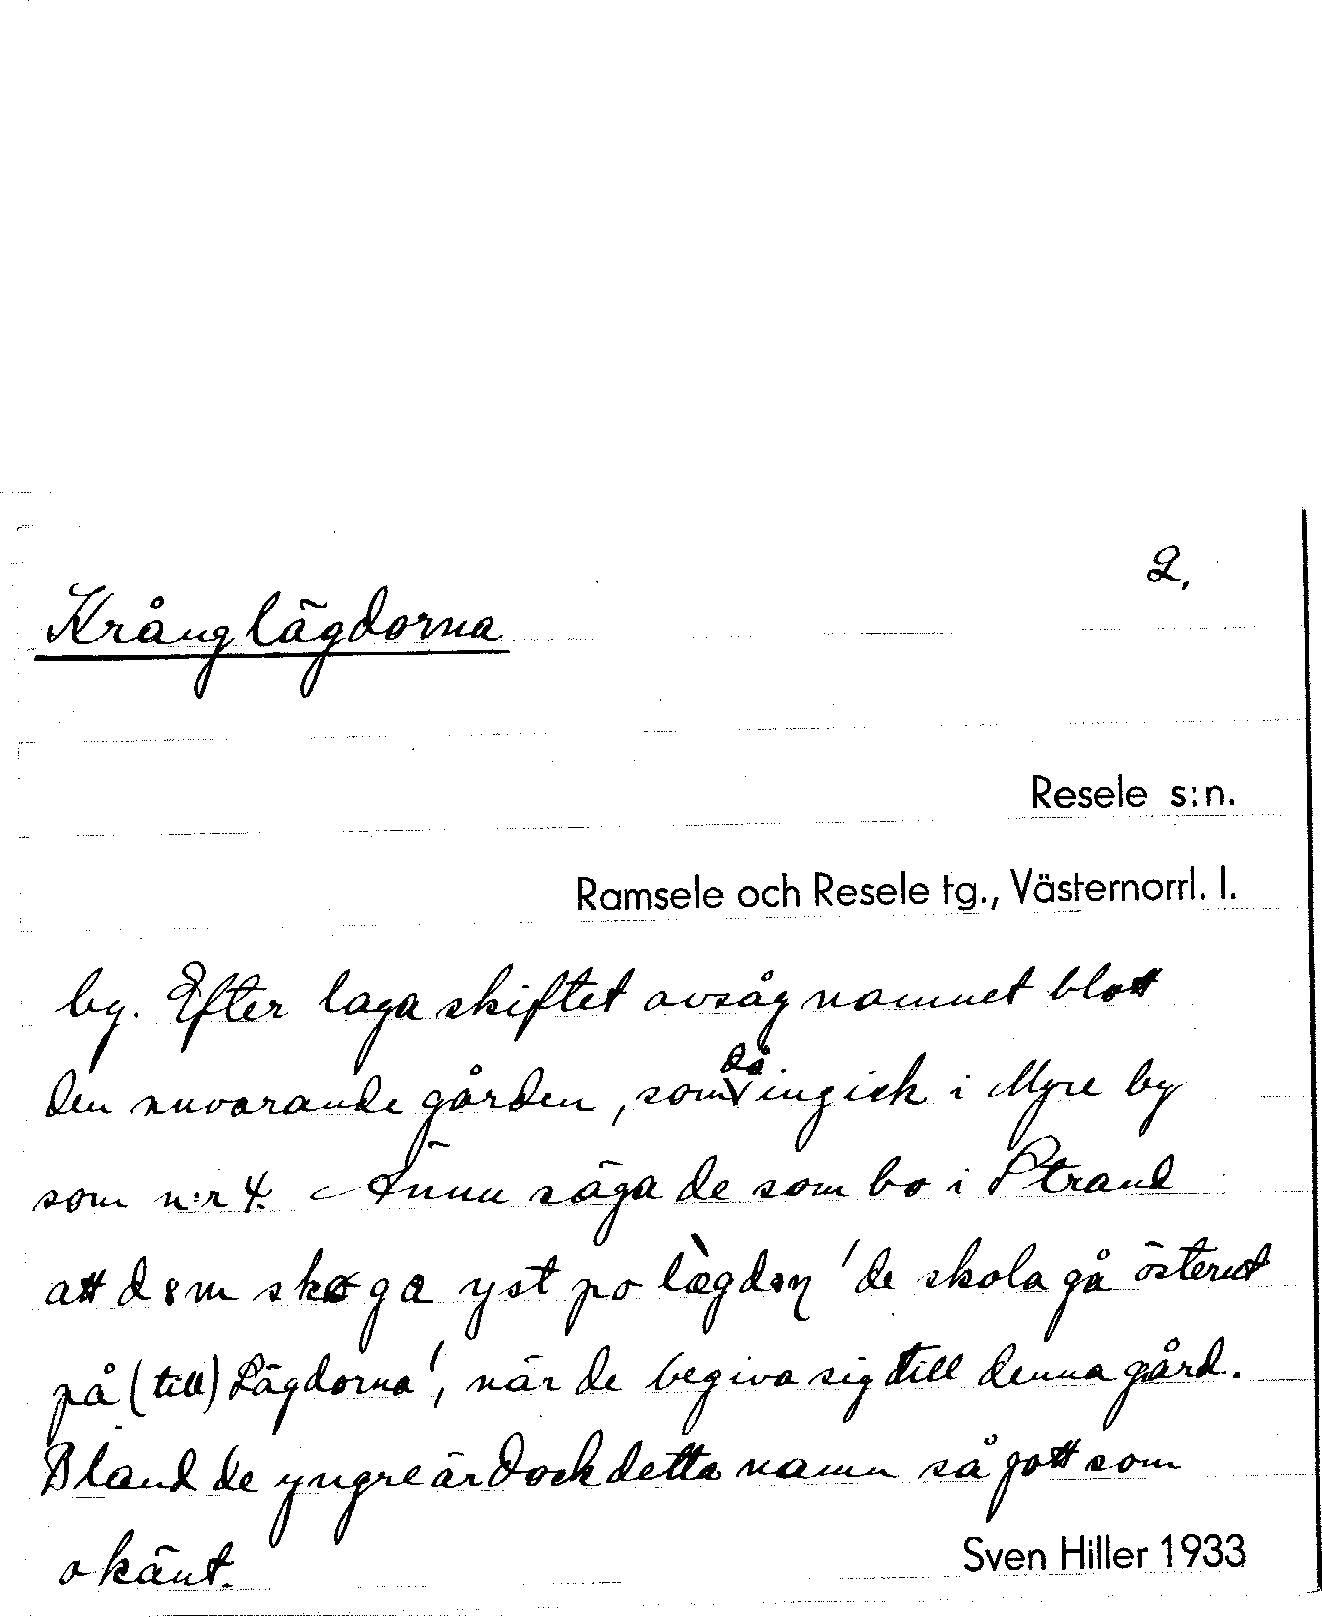 2.
Krånglägdorna
Resele s:n.
Ramsele och Resele tg., Västernorrl. l.
by. Efter laga skiftet avsåg namnet blott
den nuvarande gården, som då ingick i Myre by
som n:r 4. Ännu säga de som bo i Strand
att yst po 'de skola gå österut
på (till) Lägdorna', när de begiva sig till denna gård.
Bland de yngre är dock detta namn så gott som
okänt.
Sven Hiller 1933